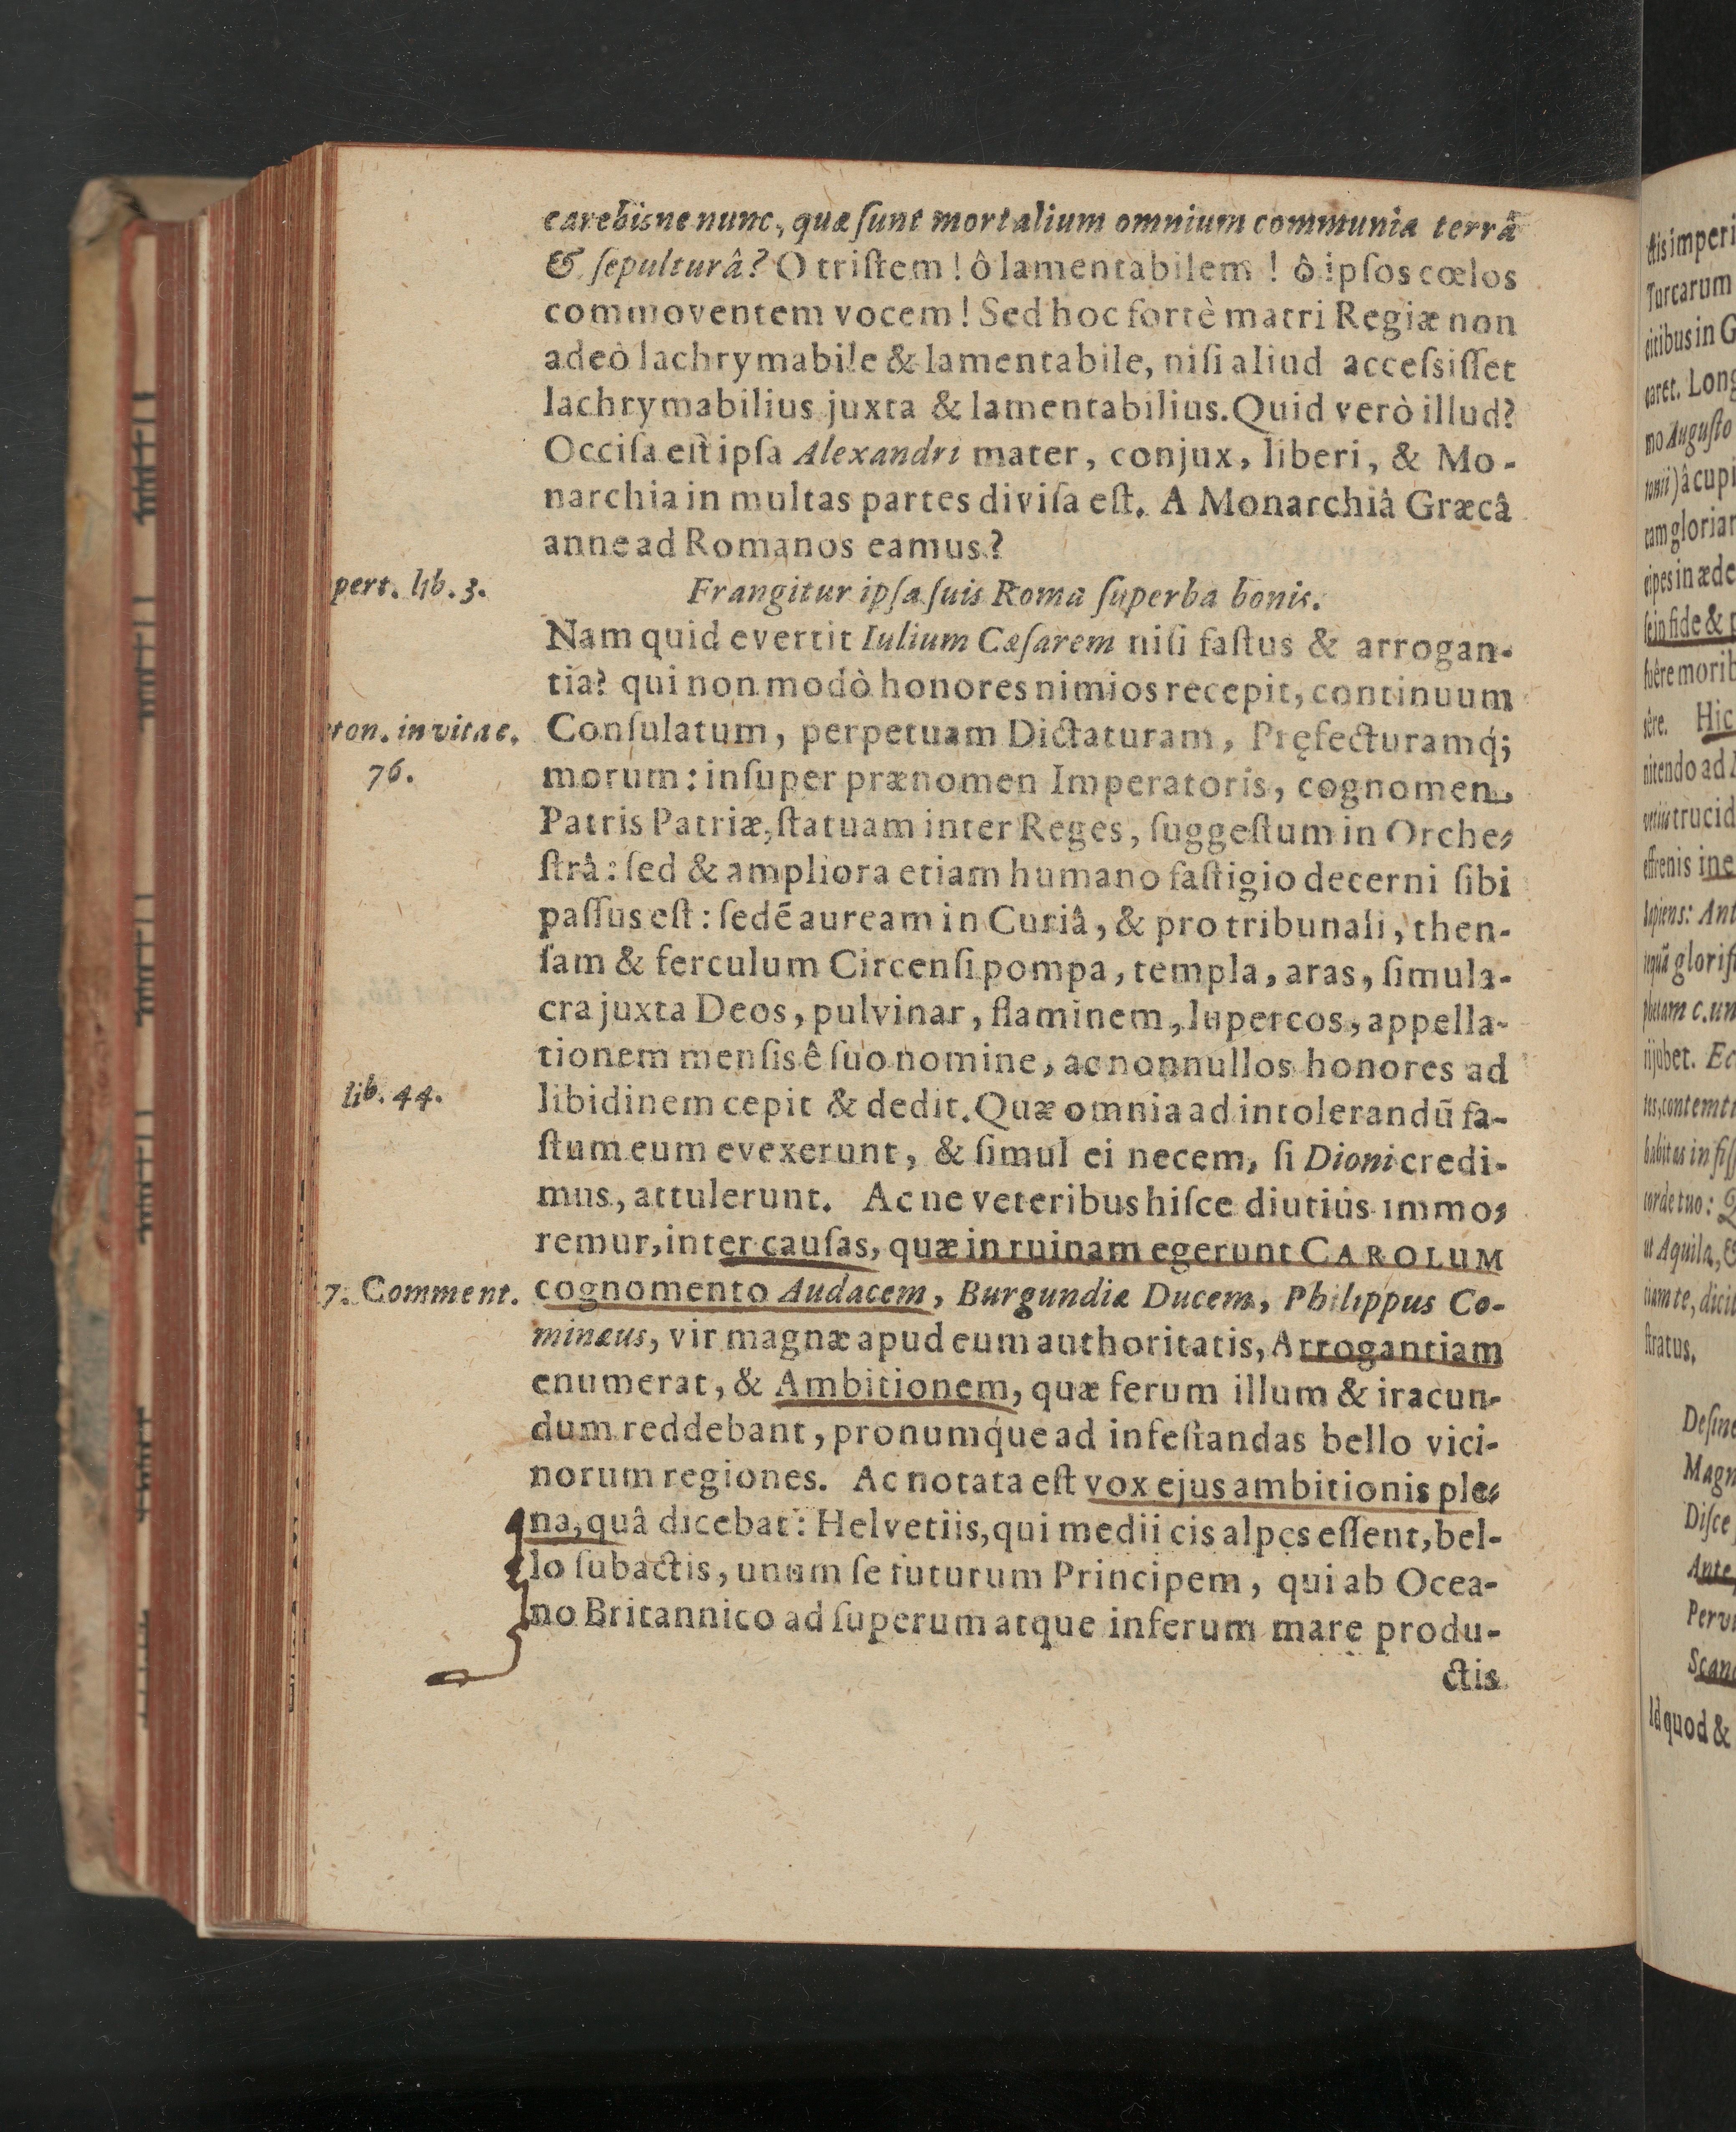 carebisne nunc, quæ ſunt mortalium omnium communia terrâ
& ſepulturâ? O triſtem! ô lamentabilem! ô ipſos cœlos
commoventem vocem! Sed hoc fortè matri Regiæ non
adeò lachrymabile & lamentabile, niſi aliud acceſsiſſet
lachrymabilius juxta & lamentabilius. Quid verò illud?
Occiſa eſt ipſa Alexandri mater, conjux, liberi, & Mo-
narchia in multas partes diviſa eſt. A Monarchiâ Græcâ
anne ad Romanos eamus?
pert. lib. 3.
Frangitur ipſa ſuis Roma ſuperba bonis.
Nam quid evertit Iulium Cæſarem niſi faſtus & arrogan-
tia? qui non modò honores nimios recepit, continuum
ton. in vita c.
76.
Conſulatum, perpetuam Dictaturam, Pręfecturamq́;
morum: inſuper prænomen Imperatoris, cognomen,
Patris Patriæ, ſtatuam inter Reges, ſuggeſtum in Orche-
ſtrâ: ſed & ampliora etiam humano faſtigio decerni ſibi
paſſus eſt: ſedẽ auream in Curiâ, & pro tribunali, then-
ſam & ferculum Circenſi pompa, templa, aras, ſimula-
cra juxta Deos, pulvinar, flaminem, lupercos, appella-
tionem menſis ê ſuo nomine, ac nonnullos honores ad
lib. 44.
libidinem cepit & dedit. Quæ omnia ad intolerandũ fa-
ſtum eum evexerunt, & ſimul ei necem, ſi Dioni credi-
mus, attulerunt. Ac ne veteribus hiſce diutiùs immo-
remur, inter cauſas, quæ in ruinam egerunt CAROLUM
7. Comment.
cognomento Audacem, Burgundiæ Ducem, Philippus Co-
minæus, vir magnæ apud eum authoritatis, Arrogantiam
enumerat, & Ambitionem, quæ ferum illum & iracun-
dum reddebant, pronumq́ue ad infeſtandas bello vici-
norum regiones. Ac notata eſt vox ejus ambitionis ple-
na, quâ dicebat: Helvetiis, qui medii cis alpes eſſent, bel-
lo ſubactis, unum ſe futurum Principem, qui ab Ocea-
no Britannico ad ſuperum atque inferum mare produ-
ctis
ctis imperi
Turcarum
citibus in G
caret. Long
mo Auguſto
tonii) â cupi
tam gloriar
cipes in æde
ſe in fide &
fuêre morib
ſêre. Hic
nitendo ad
trucid
effrenis ine
ſapiens: Ant
glorifi
c. un
ri jubet. Ec
tes, contemt
corde tuo:
ut Aquila, &
tiam te, dicit
ſtratus.
Deſine
Magn
Diſce
Ante
Perv
Scan
Id quod &